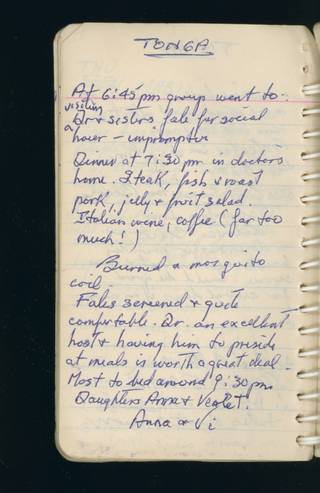 TONGA
At 6:45 pm group went to
visiting
a Dr & sisters fale for social
hour – impromptu
Dinner at 7:30 pm in doctors
home. Steak, fish & roast
pork, jelly & fruit salad.
Italian wine, coffee (far too
much!)
Burned a mosquito
coil.
Fales screened & quite
comfortable. Dr. an excellent
host & having him to preside
at meals is worth a great deal.
Most to bed around 9:30 pm
Daughters Anna & Violet.
Anna & Vi